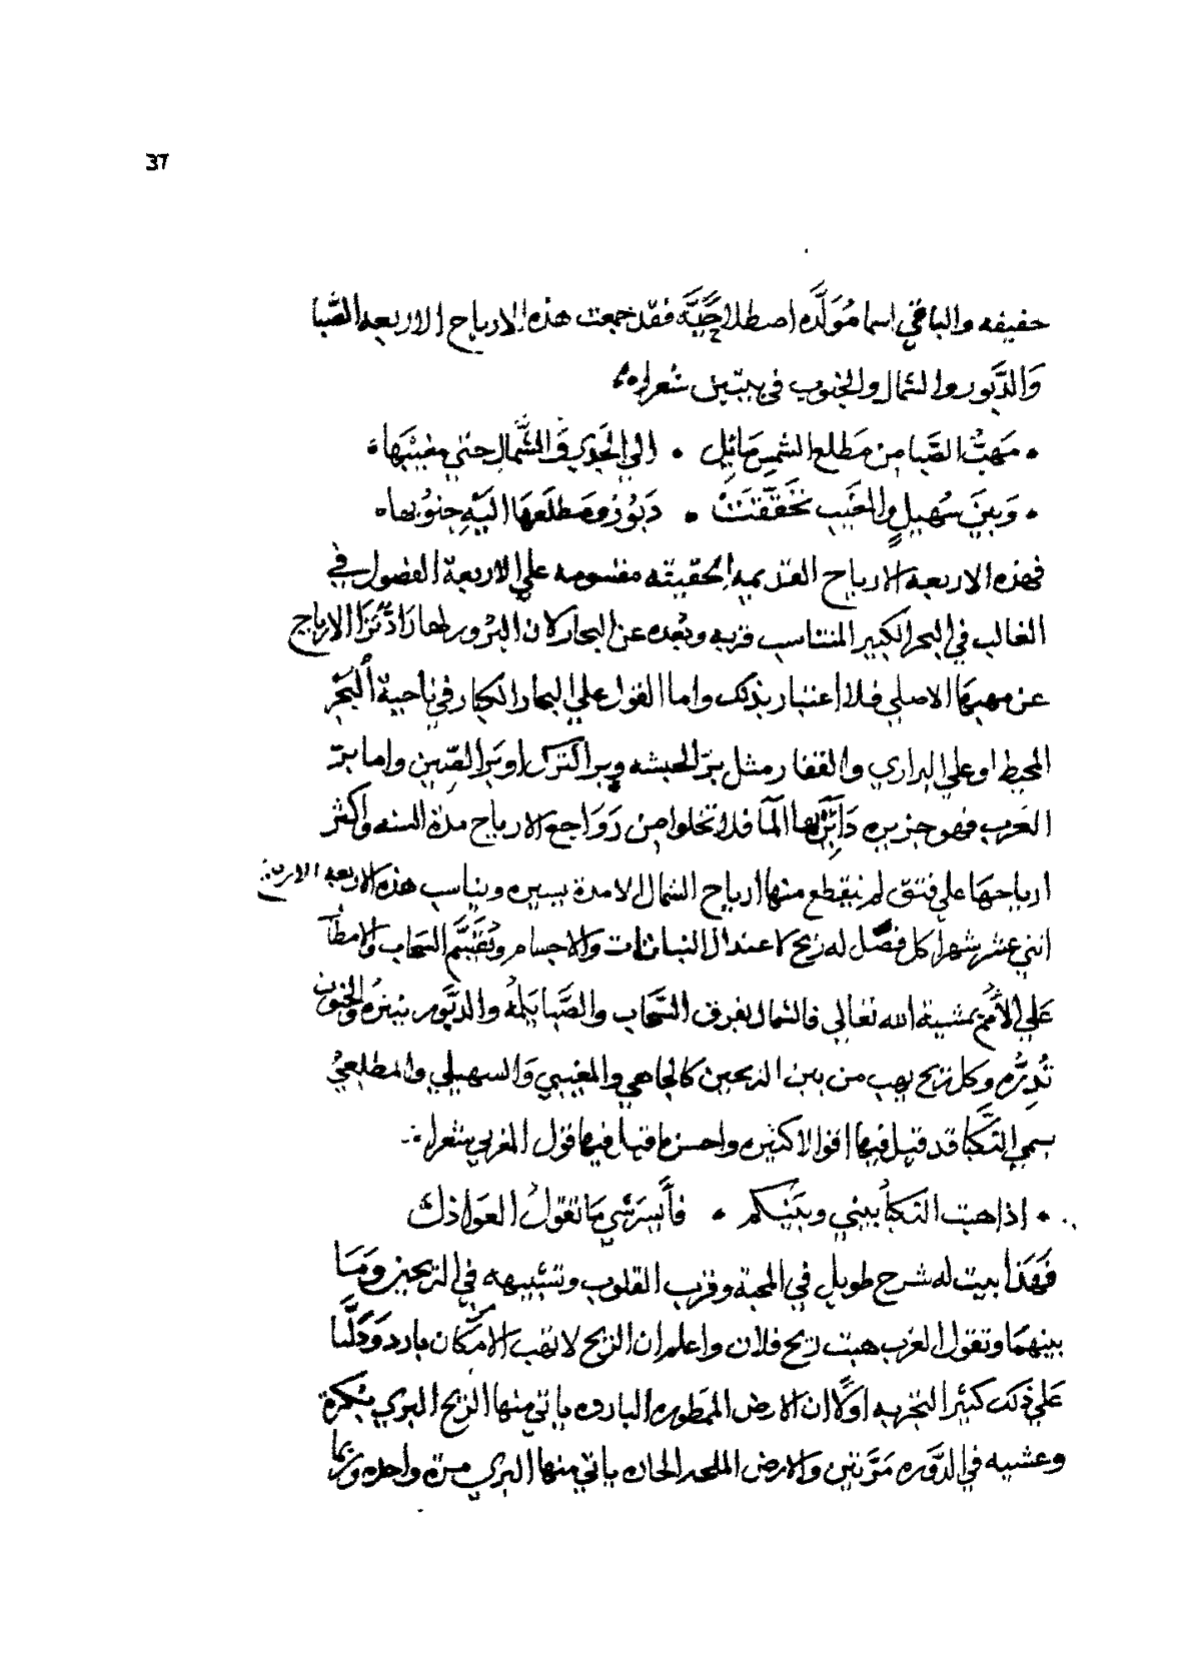 37
حقيقه والباقي اسما مُوَلَّده اصطلاحيَّه فقد جمعت هذه الارياح الاربعه الصَّبا
وَالدَّبور والشمال والجنوب في بيتين شعرا
مَهَبُّ الصَّبا مِن مَطلع الشمسِ مَائِلٍ • الي الجَدي وَالشَّمال حتي مغيبَهَا
وَبينَ سُهيلٍ والمغيبِ تحَقَّقَتْ • دَبوُرٌ ومَطلعَهَا اليَهِ جنوُبها
فهذه الاربعه الارياح القديمه الحقيقه مقسومه علي الاربعة الفصول في
الغالب في البحر الكبير المتناسب قربه وبُعده عن البحار كان البرُور لها رَادّ تردّ الارياح
عن مهبهَا الاصلي فلا اعتبار بذلك واما القول علي البحار الكبار في ناحية البَحر
المحيط او علي البراري والقفار مثل برّ الحبشه وبر اكترك او برَ الصّين واما برّ
العَرب فهو جزيره دَايَرٌ بها المآ فلا تخلوا من رَوَاجع الارياح مدة السنه واكثر
ارياحهَا علي فتق لم ينقطع منها ارياح الشمال الا مدة يسيره ويناسب هذه الاربعه الارياح
اثني عشر شهراً كل فصّل له ريح لاعتدال النباتات والاجسام وتُقَسِّم السحاب والامطآ
عَلي الأمَم بمشيئة الله تعالي فالشمال يفرق السَّحاب والصَّبا يَلمهُ والدَّبَور ينثرهُ والجنوب
تُدِرُّه وكل ريح يهب من بين الريحين كالجاهي والمغيبي وَالسهيلي والمطلعيُ
يسمي النَّكبا قد قيل فيها اقوال كثيره واحسن ما قيل فيها قول المغربي شعرا
• اذا هبت النكبآ بيني وبَيْنكم • فأَيسَر شي مَا تقَولُ العَواذلُ
فَهَذا بيت له شرح طويل في المحبة وقرب القلوب وتشبيهه في الريحين وَمَا
بينهمَا وتقول العَرب هبت ريح فلان واعلم ان الريح لا تهب الا مكَان بارد وَدَلَّنا
عَلي ذَلك كثير التجربه اوَّلا ان الارض المَمطوره البارده ياتي منها الرّيح البري بُكرة
وعشيه في الدَّوره مَرَّتين والارض الملحه الحاره ياتي منها البري مرة واحده وربما